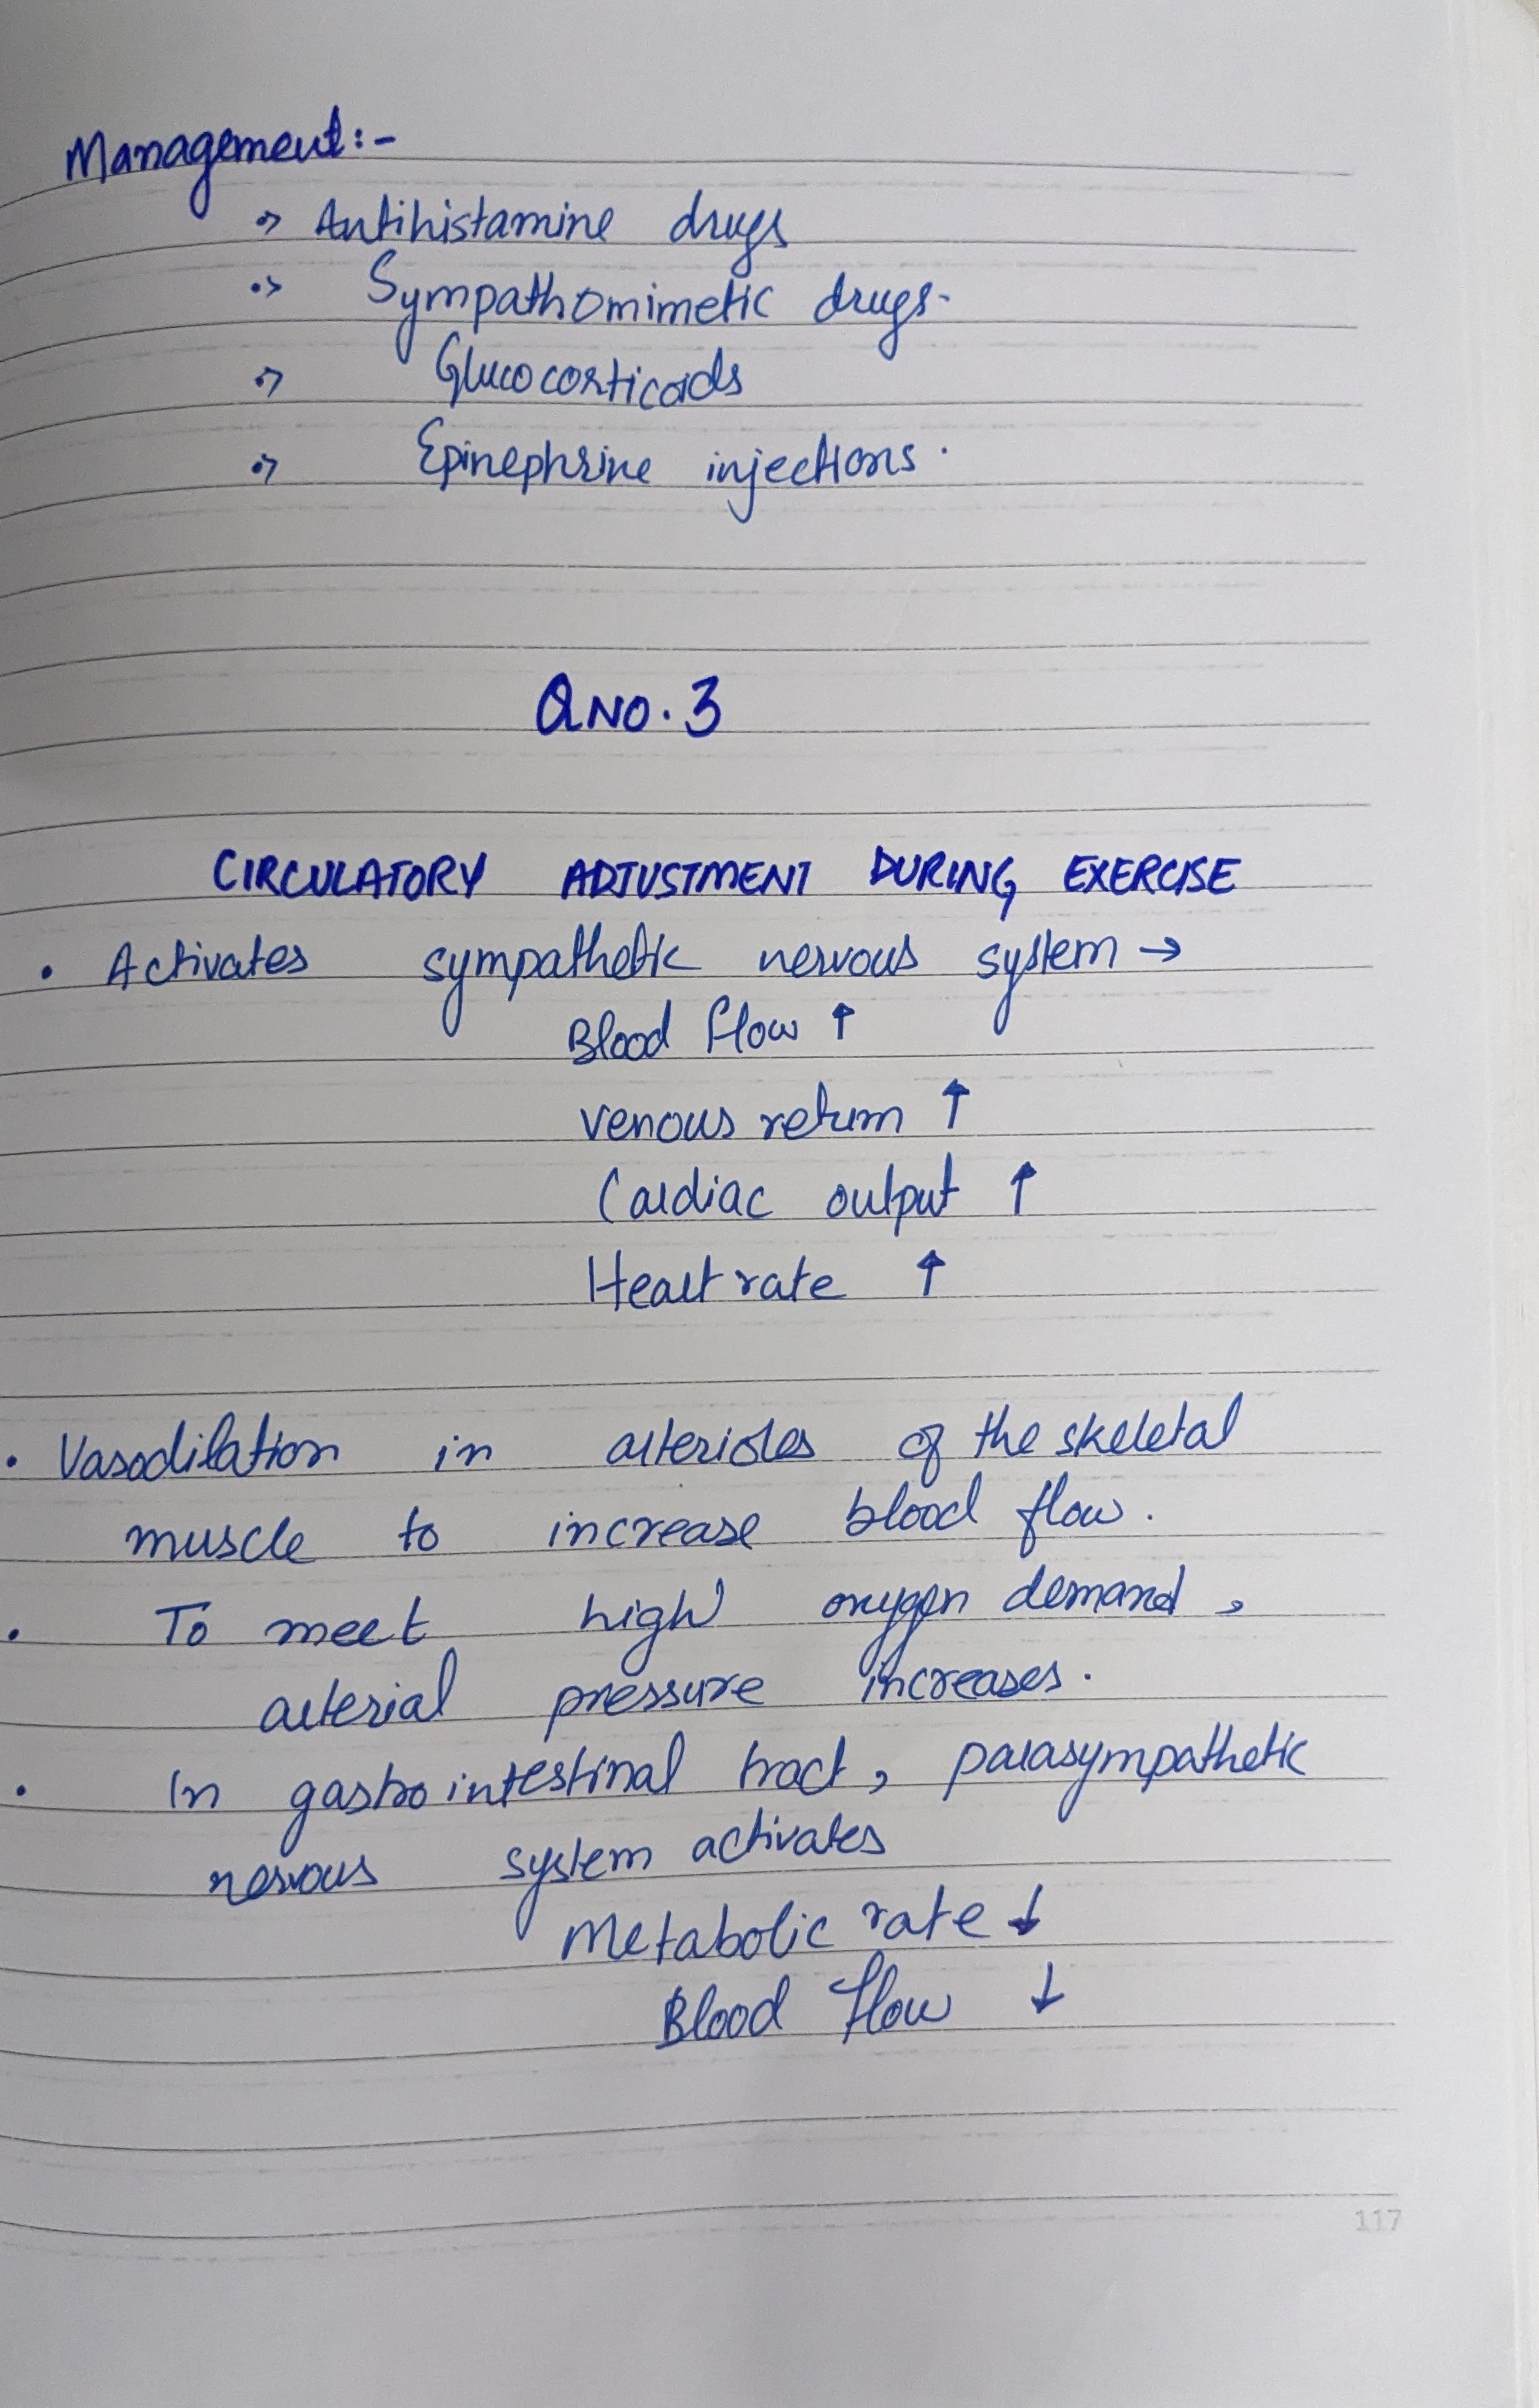 Management:-
•> Antihistamine drugs
•> Sympathomimetic drugs.
•> Glucocorticoids
•> Epinephrine injections.
QNO.3
CIRCULATORY ADJUSTMENT DURING EXERCISE
• Activates sympathetic nervous system →
Blood flow ↑
venous return ↑
Cardiac output ↑
Heart rate ↑
• Vasodilation in arterioles of the skeletal
muscle to increase blood flow.
• To meet high oxygen demand,
arterial pressure increases.
• In gastrointestinal tract, parasympathetic
nervous system activates
Metabolic rate ↓
Blood flow ↓
117